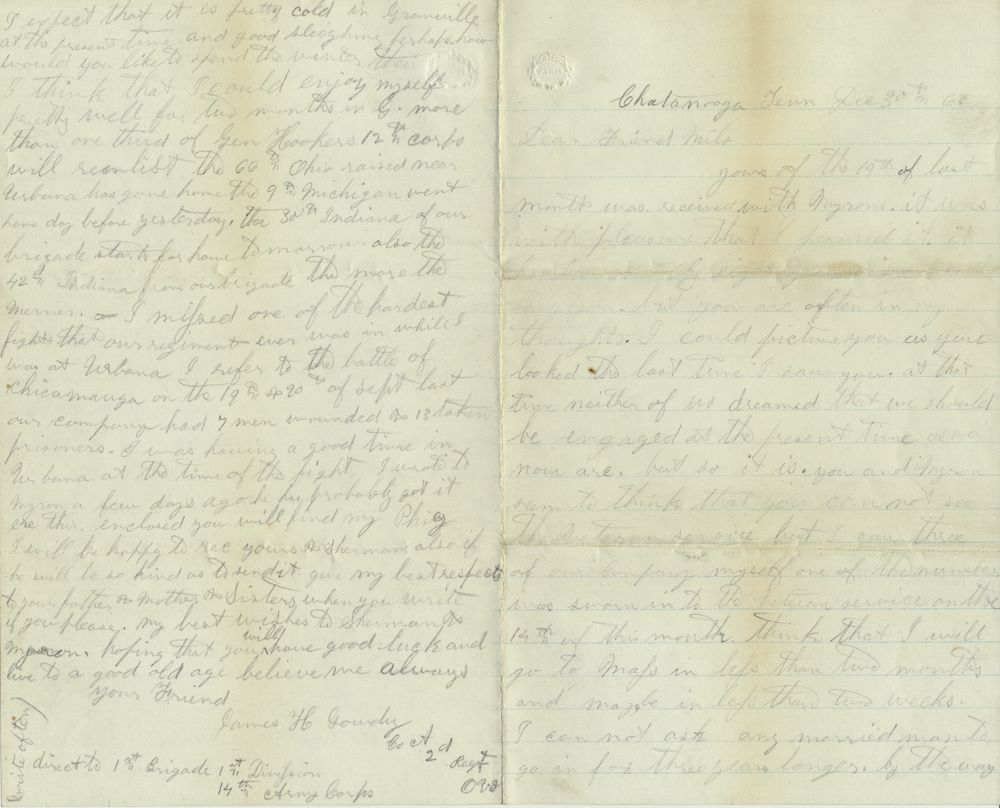 Chatanooga Tenn Dec 30th 63
Dear Friend Milo
yours of the 19th of last
month was received with Myrons. it was
with pleasure that I perused it. it
but you are often in my
thoughts. I could picture you as you
looked the last time I saw you. at that
time neither of us dreamed that we should
be engaged at the present time as we
now are. but so it is. you and Myron
seem to think that you can not see
the veteran service but I can three
of our Company myself one of the number
was sworn in to the veteran service on the
14th of this month. think that I will
go to Mass in less than two months
and maybe in less than two weeks.
I can not ask any married man to
go in for three years longer. by the way
I expect that it is pretty cold in Granville
at the present time. and good sleighing perhaps. how
would you like to spend the winter their
I think that I could enjoy myself
pretty well for two months in G. more
than one third of Gen Hookers 12th corps
will reenlist the 66th Ohio raised near
Urbana has gone home the 9th Michigan went
home day before yesterday. the 30th Indiana of our
brigade starts for home tomorrow. also the
42d Indiana from our brigade the more the
merrier. I missed one of the hardest
fights that our regiment ever was in while I
was at Urbana I refer to the battle of
Chicamauga on the 19th & 20th of Sept last
our company had 7 men wounded & 13 taken
prisoners. I was having a good time in
Urbana at the time of the fight I wrote to
Myron a few days ago he has probably got it
ere this. enclosed you will find my Phiz
I will be happy to rec yours & Shermans also if
he will be so kind as to send it. give my best respects
to your father & Mother & Sisters when you write
if you please. My best wishes to Sherman &
Myron. hoping that you will have good luck and
live to a good old age believe me always
Your Friend
James H Gowdy
Co A 2d Regt
OVI
direct to 1st Brigade 1st Division
14th Army Corps
(write often)